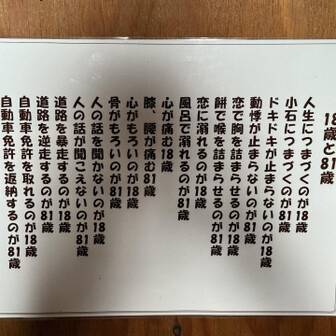 18歳と81歳
人生につまづくのが18歳
小石につまづくのが81歳
ドキドキが止まらないのが18歳
動悸が止まらないのが81歳
恋で胸を詰まらせるのが18歳
餅で喉を詰まらせるのが81歳
恋に溺れるのが18歳
風呂で溺れるのが81歳
心が痛む18歳
膝、腰が痛む81歳
心がもろいのが18歳
骨がもろいのが81歳
人の話を聞かないのが18歳
人の話が聞こえないのが81歳
道路を暴走するのが18歳
道路を逆走するのが81歳
自動車免許を取れるのが18歳
自動車免許を返納するのが81歳